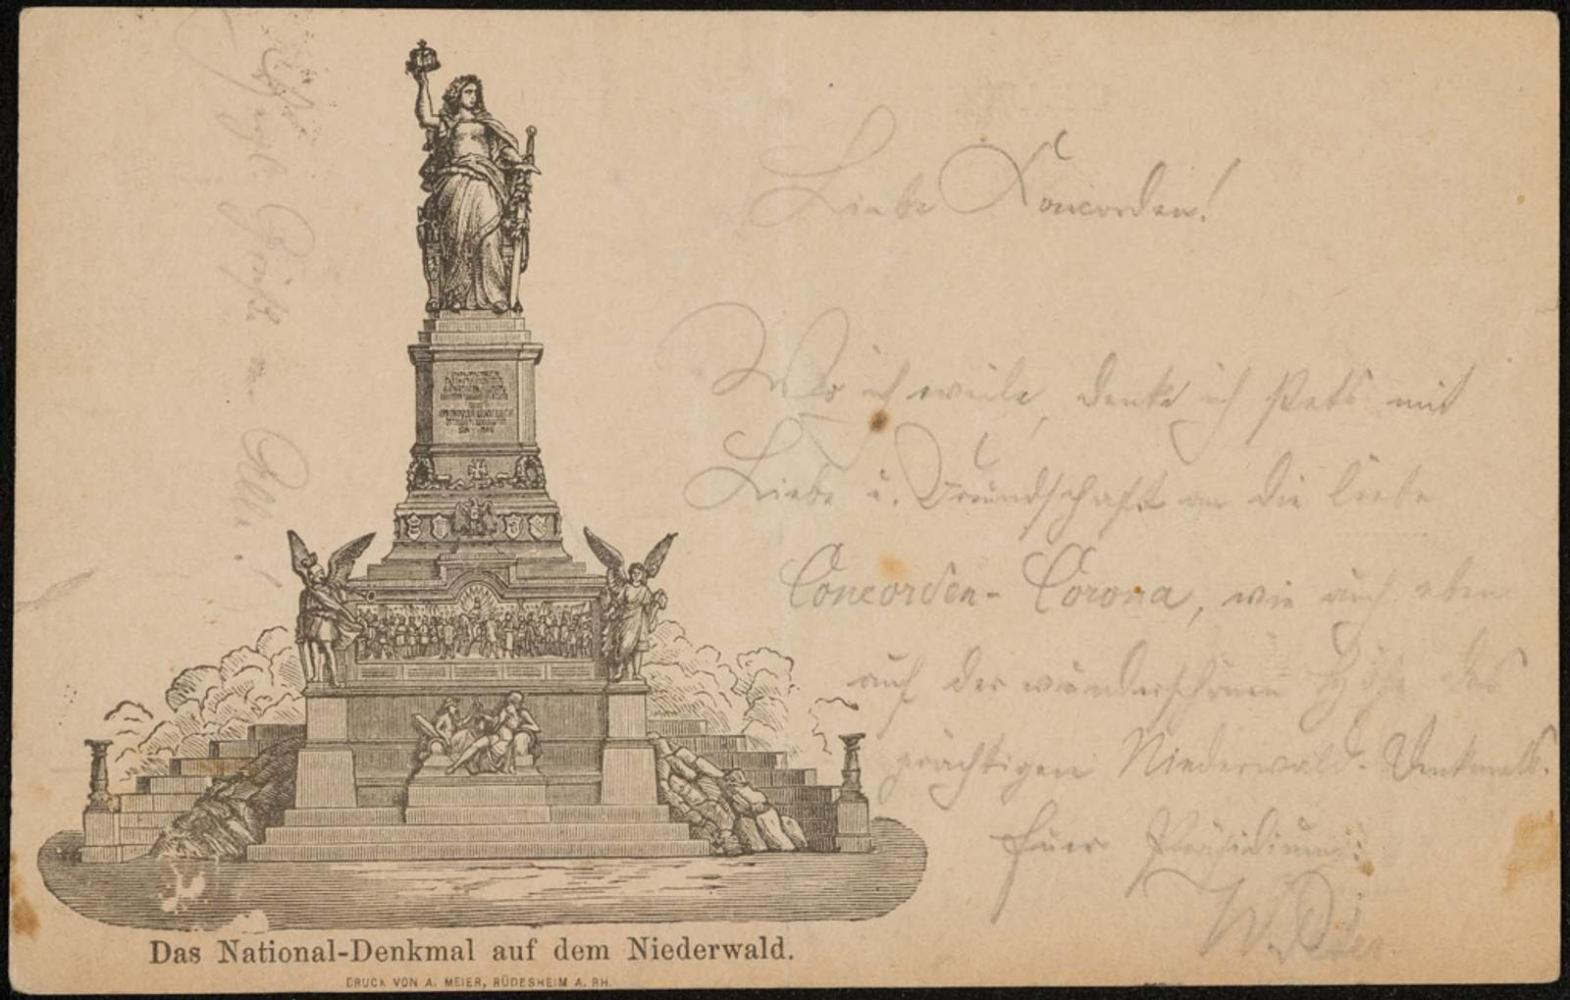 Liebe Concorden!
Wo ich weile, denke ich stets mit
Liebe u. Freundschaft an die liebe
Concorden-Corona, wie auch eben
auf der wunderschönen Höhe des
prächtigen Niederwald-Denkmals.
Euer Präsidium:
W.
Grüße an Alle!
Das National-Denkmal auf dem Niederwald.
DRUCK VON A. MEIER, RÜDESHEIM A. RH.